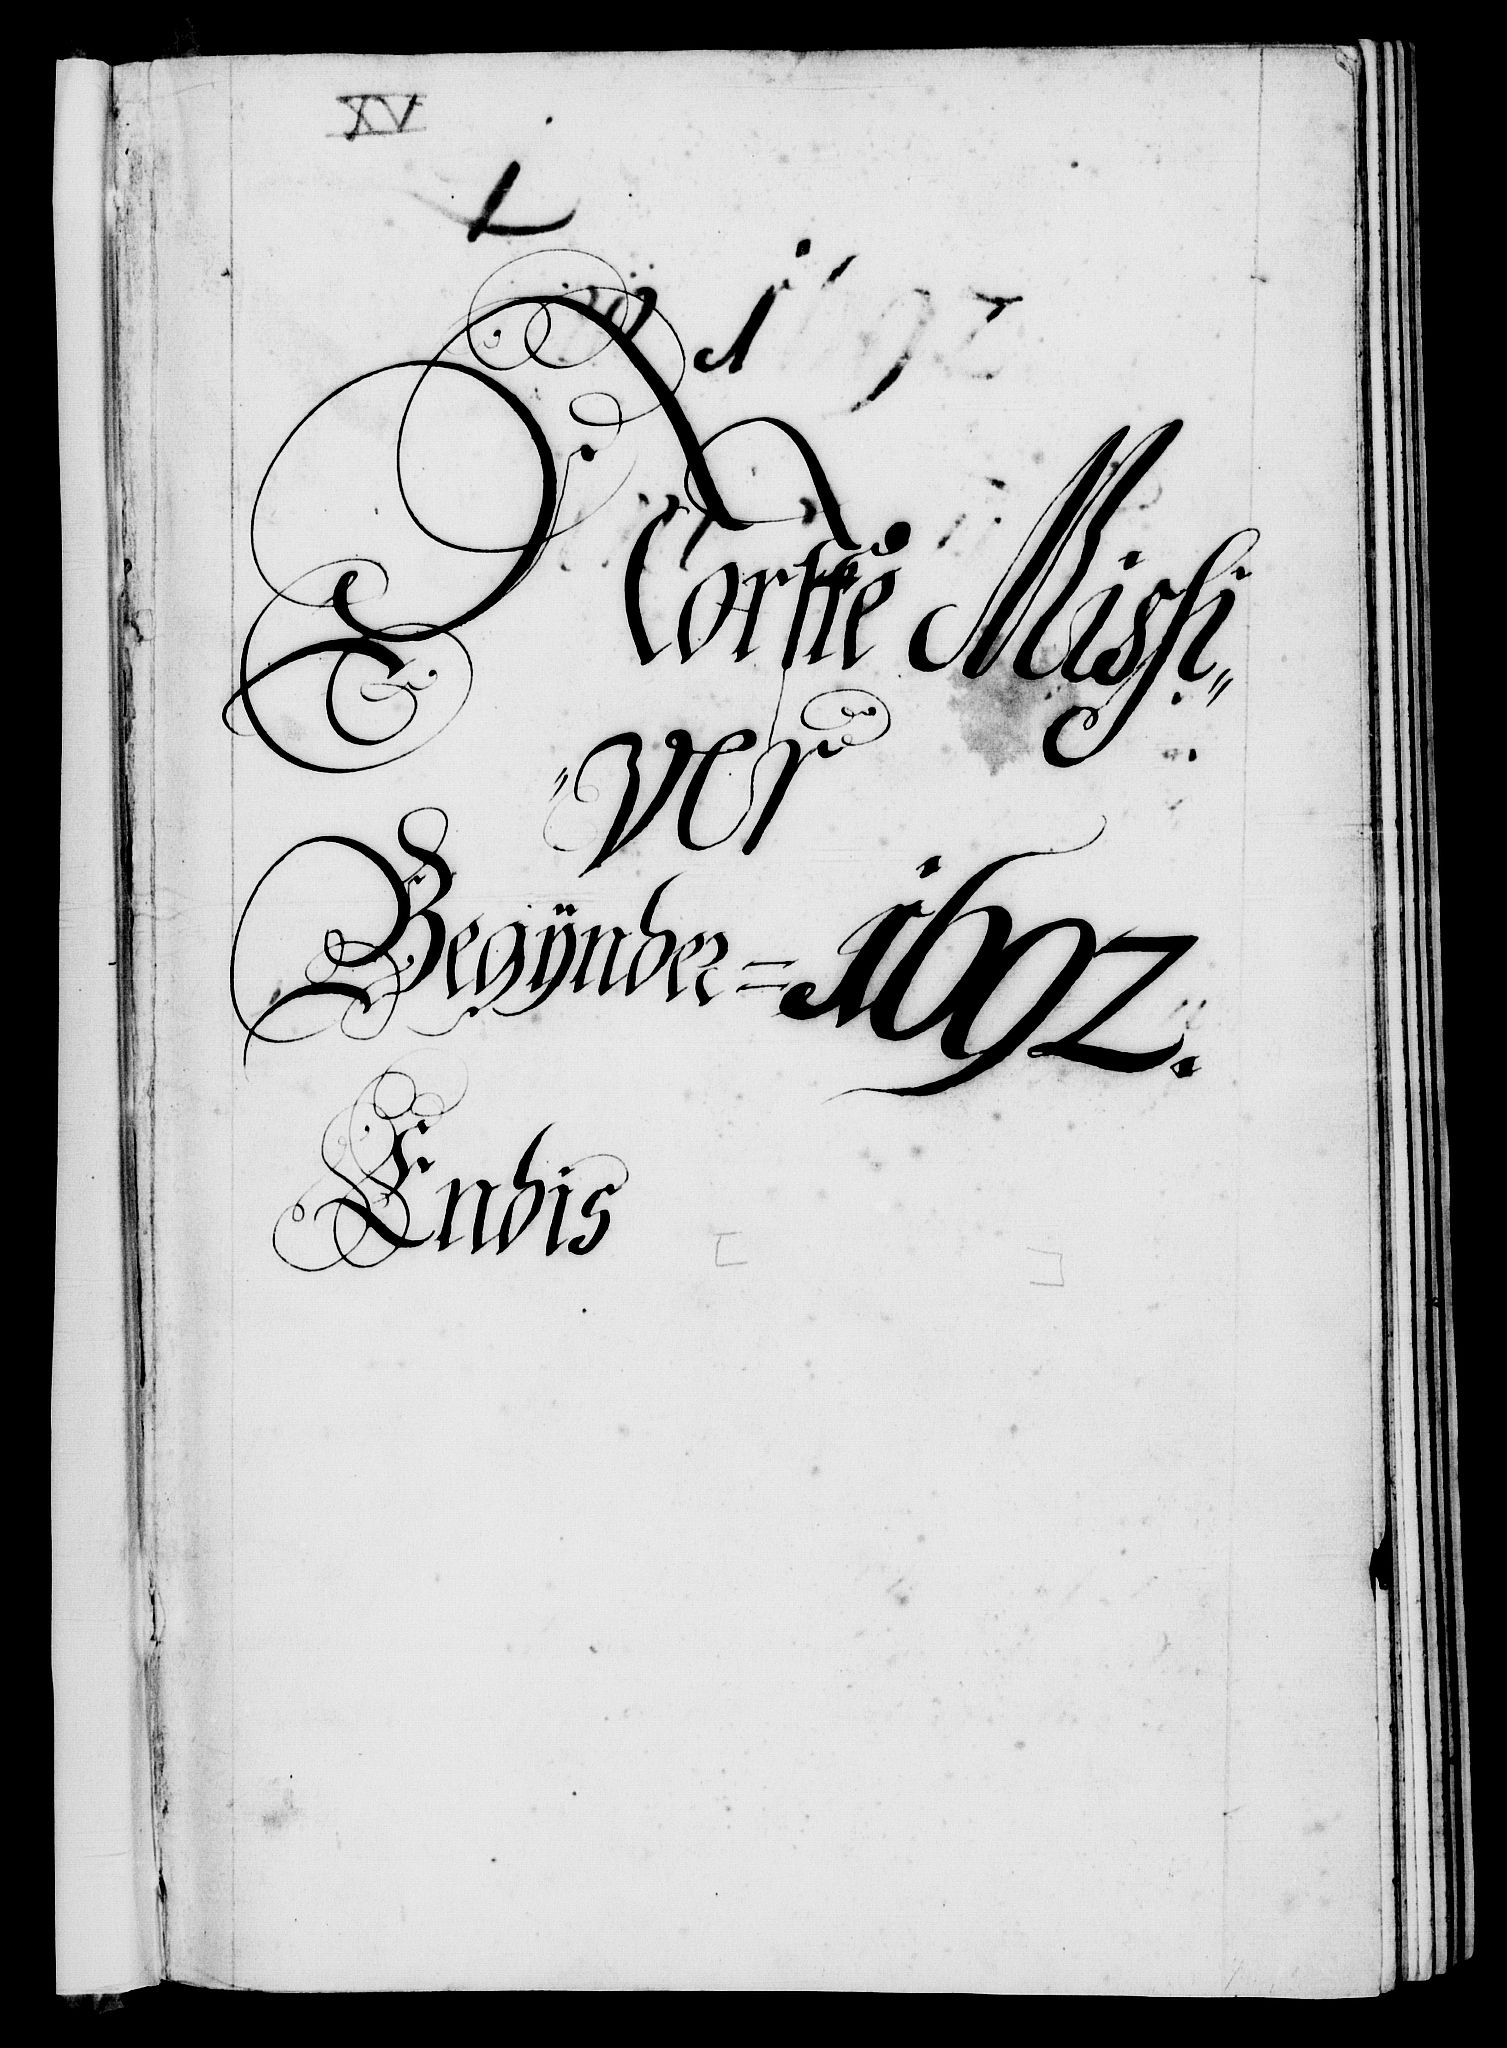 XV
Norske Missi„
„ver
Begÿnder = 1692.
Endis
[ ]